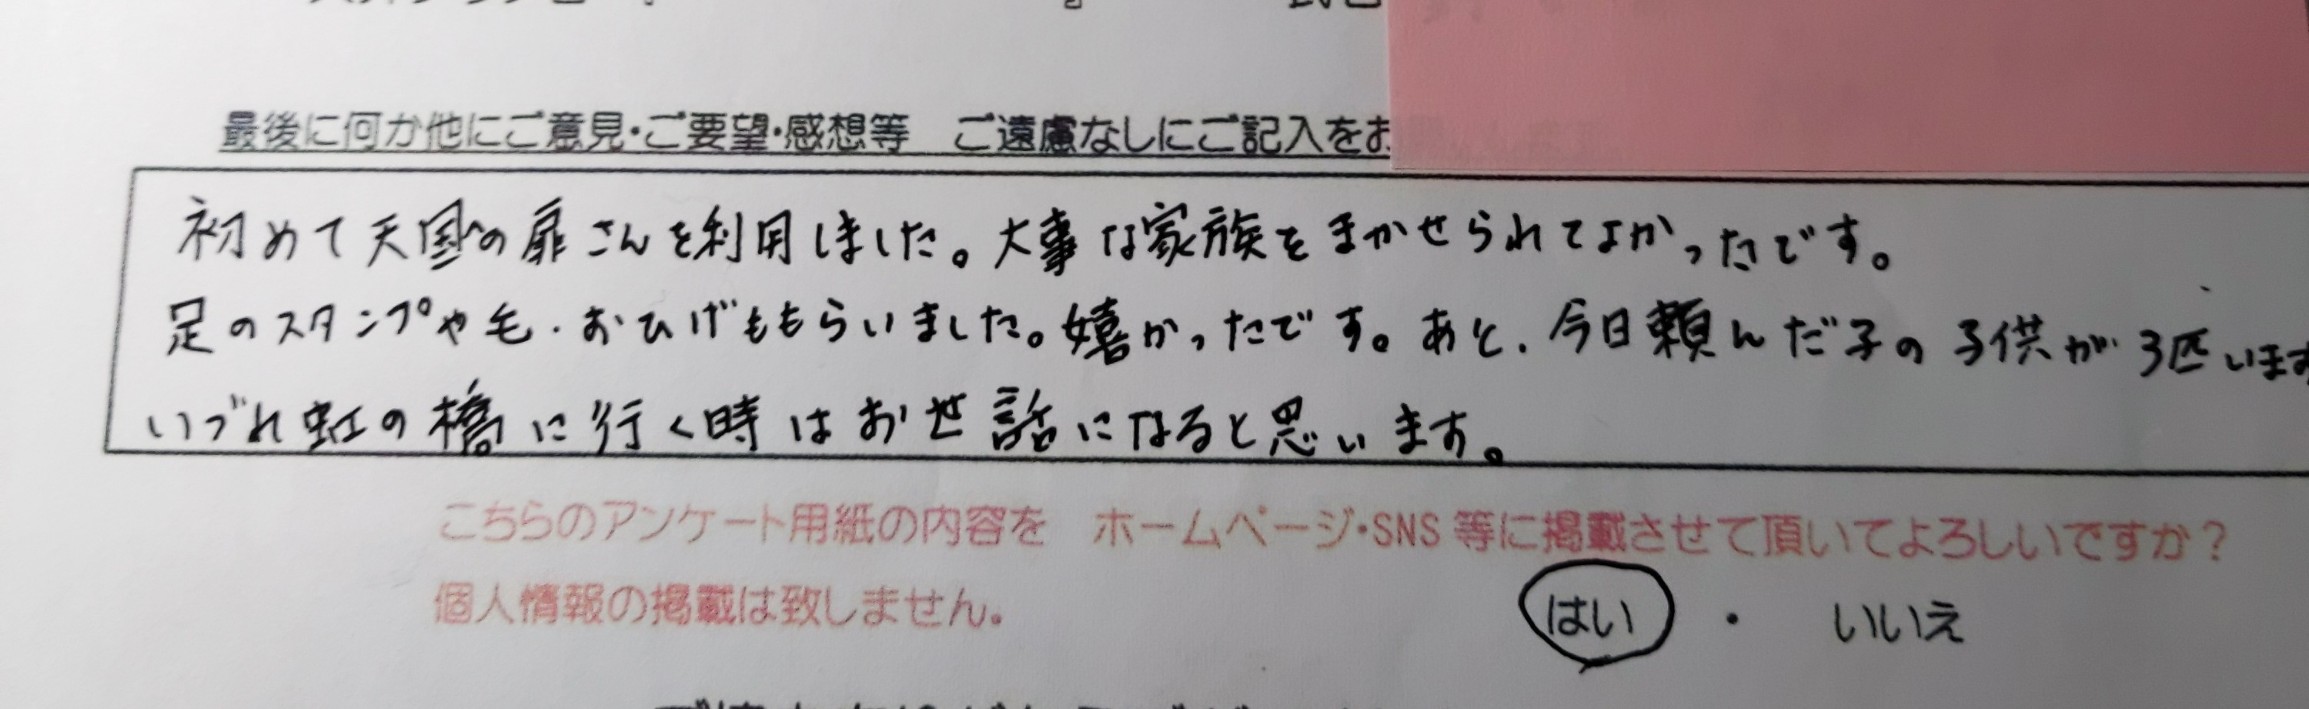 最後に何か他にご意見・ご要望・感想等　ご遠慮なしにご記入をお
初めて天国への扉さんを利用しました。大事な家族をまかせられてよかったです。
足のスタンプや毛・おひげももらいました。嬉かったです。あと、今日頼んだ子の子供が3匹います
いづれ虹の橋に行く時はお世話になると思います。
こちらのアンケート用紙の内容を　ホームページ・SNS 等に掲載させて頂いてよろしいですか？
個人情報の掲載は致しません。
はい　・　いいえ